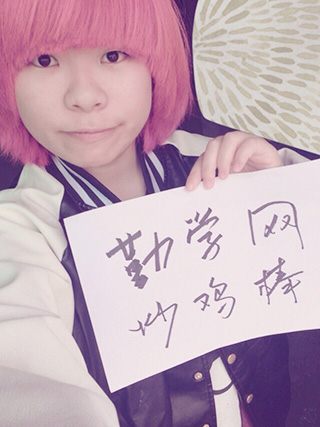 勤学网
炒鸡棒